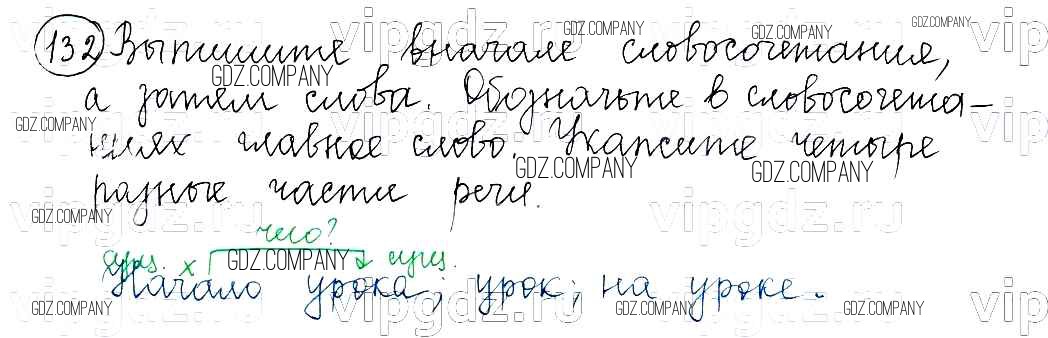 132 Выпишите вначале словосочетания,
а затем слова. Обозначьте в словосочета-
ниях главное слово. Укажите четыре
разные части речи.
чего?
сущ. х сущ.
Начало урока; урок; на уроке.
vipgdz.ru
GDZ.COMPANY